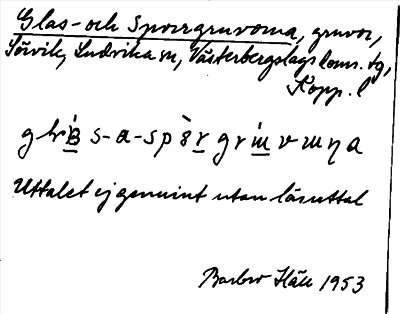 Glas- och Sporrgruvorna, gruvor,
Sörvik, Ludvika sn, Västerbergslags doms. tg,
Kopp. l
Uttalet ej genuint utan läsuttal
Barbro Häll 1953